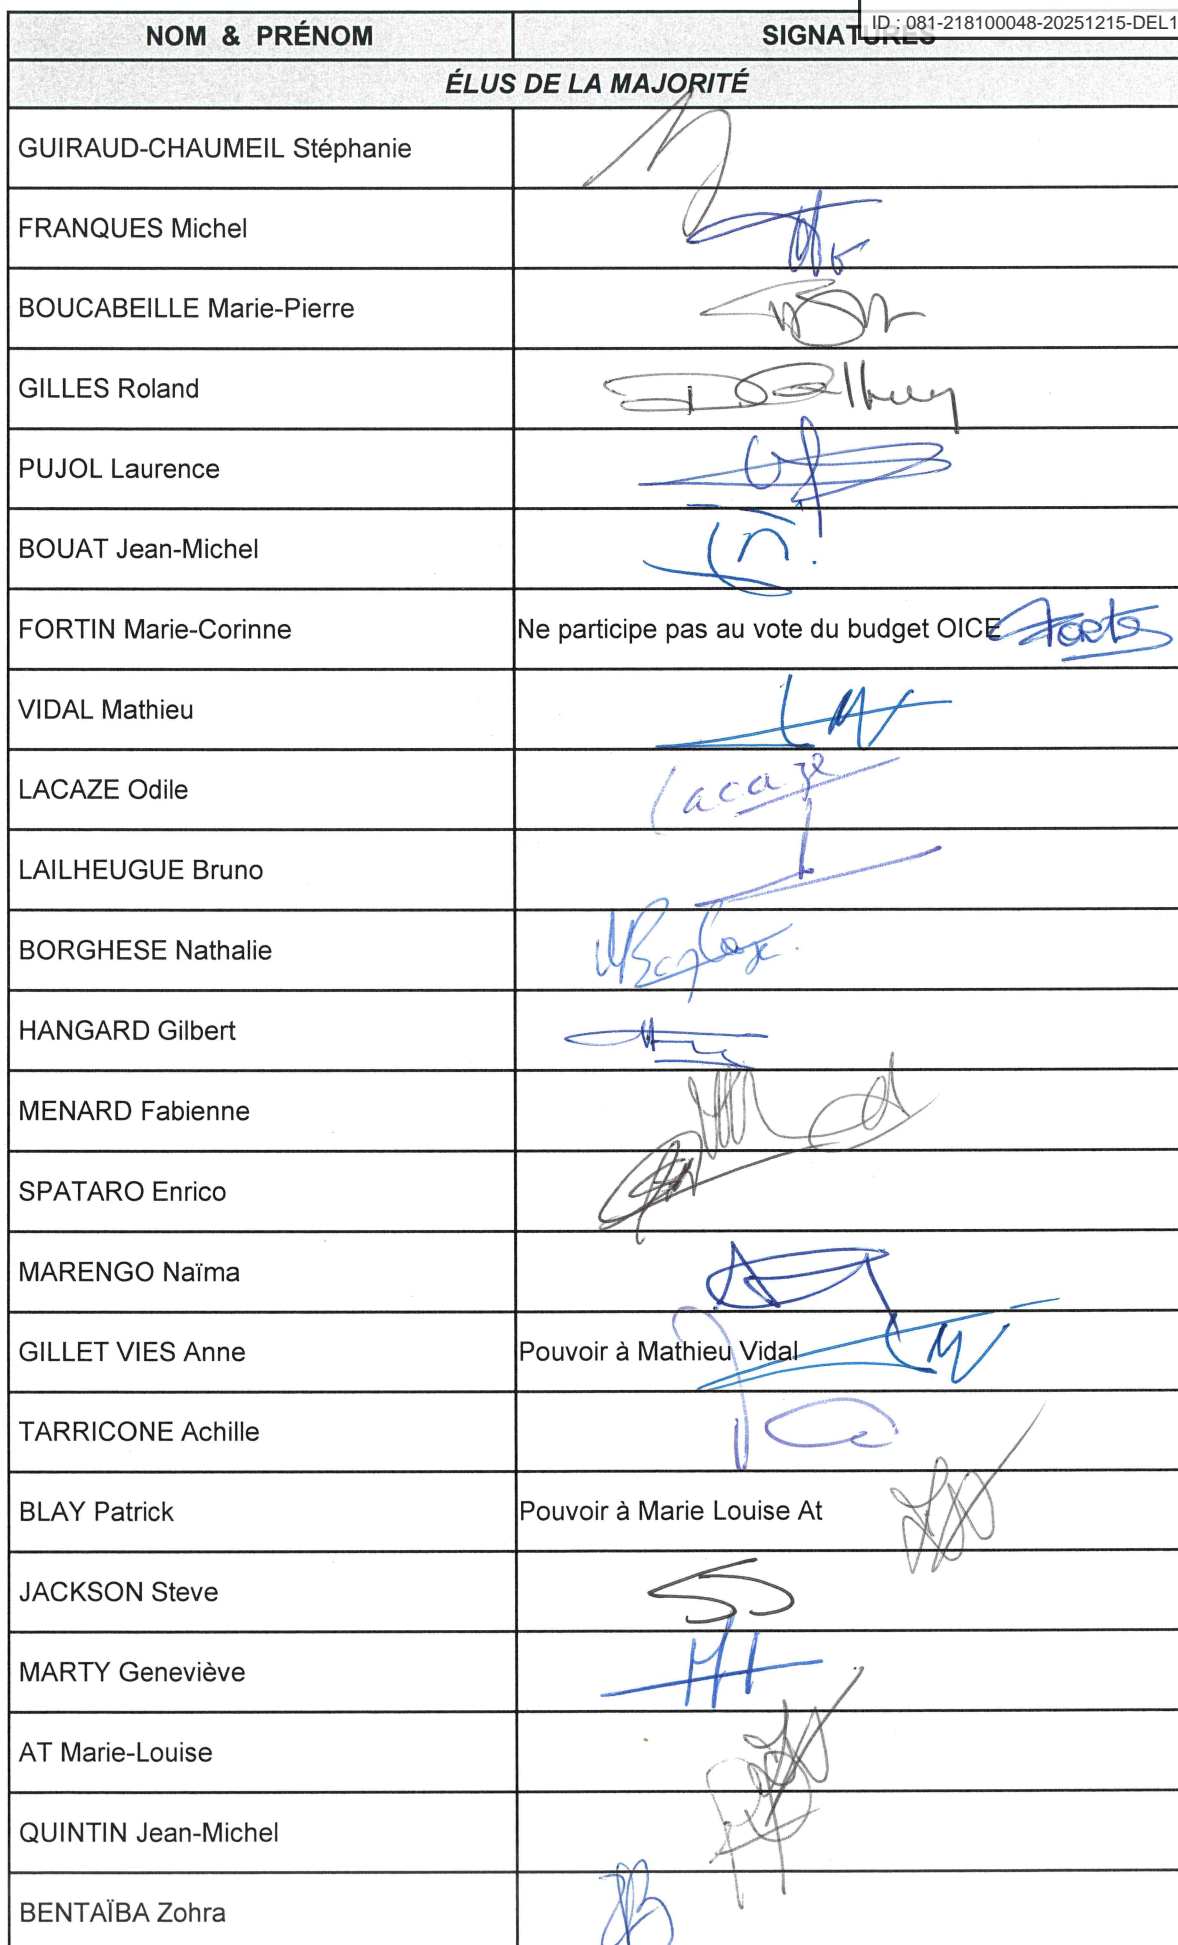 ID : 081-218100048-20251215-DEL1
NOM & PRÉNOM SIGNATURES
ÉLUS DE LA MAJORITÉ
GUIRAUD-CHAUMEIL Stéphanie
FRANQUES Michel
BOUCABEILLE Marie-Pierre
GILLES Roland
PUJOL Laurence
BOUAT Jean-Michel
FORTIN Marie-Corinne Ne participe pas au vote du budget OICE
VIDAL Mathieu
LACAZE Odile Lacaze
LAILHEUGUE Bruno
BORGHESE Nathalie
HANGARD Gilbert
MENARD Fabienne
SPATARO Enrico
MARENGO Naïma
GILLET VIES Anne Pouvoir à Mathieu Vidal
TARRICONE Achille
BLAY Patrick Pouvoir à Marie Louise At
JACKSON Steve
MARTY Geneviève
AT Marie-Louise
QUINTIN Jean-Michel
BENTAÏBA Zohra